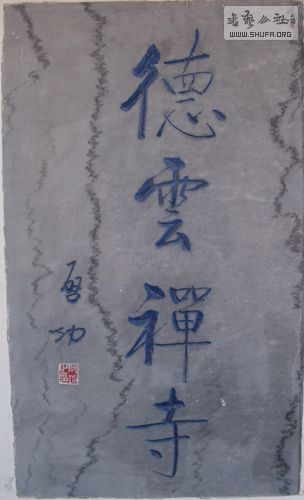 德雲禪寺
啓功
書藝公社
WWW.SHUFA.ORG